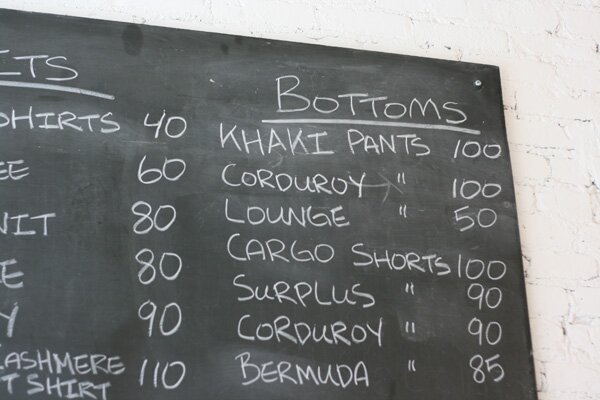 BOTTOMS
SHIRTS 40
60
80
80
90
CASHMERE
T SHIRT 110
KHAKI PANTS 100
CORDUROY " 100
LOUNGE " 50
CARGO SHORTS 100
SURPLUS " 90
CORDUROY " 90
BERMUDA " 85